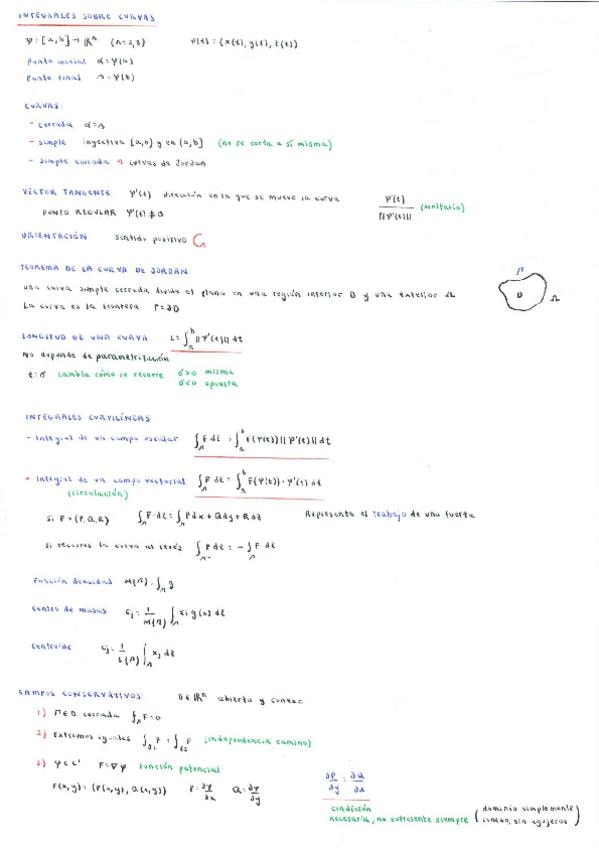 INTEGRALES SOBRE CURVAS
φ: [a,b] → ℝⁿ (n=2,3) φ(t) = (x(t), y(t), z(t))
punto inicial α=φ(a)
punto final φ(b)
CURVAS:
- cerrada
- simple inyectiva [a,b) y en (a,b] (no se corta a sí misma)
- simple cerrada → curvas de Jordan
VECTOR TANGENTE φ'(t) dirección en la que se mueve la curva φ'(t)/||φ'(t)|| (unitario)
PUNTO REGULAR φ'(t) ≠ 0
ORIENTACIÓN sentido positivo
TEOREMA DE LA CURVA DE JORDAN
una curva simple cerrada divide el plano en una región interior D y una exterior Ω
La curva es la frontera Γ=∂D
D Ω
LONGITUD DE UNA CURVA L = ∫ₐᵇ ||φ'(t)|| dt
No depende de parametrización
t:σ cambia cómo se recorre σ>0 misma
σ<0 opuesta
INTEGRALES CURVILÍNEAS
- Integral de un campo escalar ∫_Γ F dl = ∫ₐᵇ F(φ(t)) ||φ'(t)|| dt
- Integral de un campo vectorial ∫_Γ F dl = ∫ₐᵇ F(φ(t)) · φ'(t) dt
(circulación)
Si F=(P,Q,R) ∫_Γ F·dl = ∫_Γ Pdx + Qdy + Rdz Representa el trabajo de una fuerza
Si recorres la curva al revés ∫_Γ⁻ F dl = -∫_Γ F dl
Función densidad M(Γ) = ∫_Γ g
Centro de masas cⱼ = 1/M(Γ) ∫_Γ xⱼ g(x) dl
Centroide cⱼ = 1/L(Γ) ∫_Γ xⱼ dl
CAMPOS CONSERVATIVOS D∈ℝⁿ abierto y conexo
1) Γ∈D cerrada ∮_Γ F=0
2) Extremos iguales ∫_γ₁ F = ∫_γ₂ F (independencia camino)
3) φ∈C¹ F=∇φ Función potencial
F(x,y) = (P(x,y), Q(x,y)) P=∂φ/∂x Q=∂φ/∂y ∂P/∂y = ∂Q/∂x
condición
necesaria, no suficiente siempre (dominio simplemente
conexo, sin agujeros)